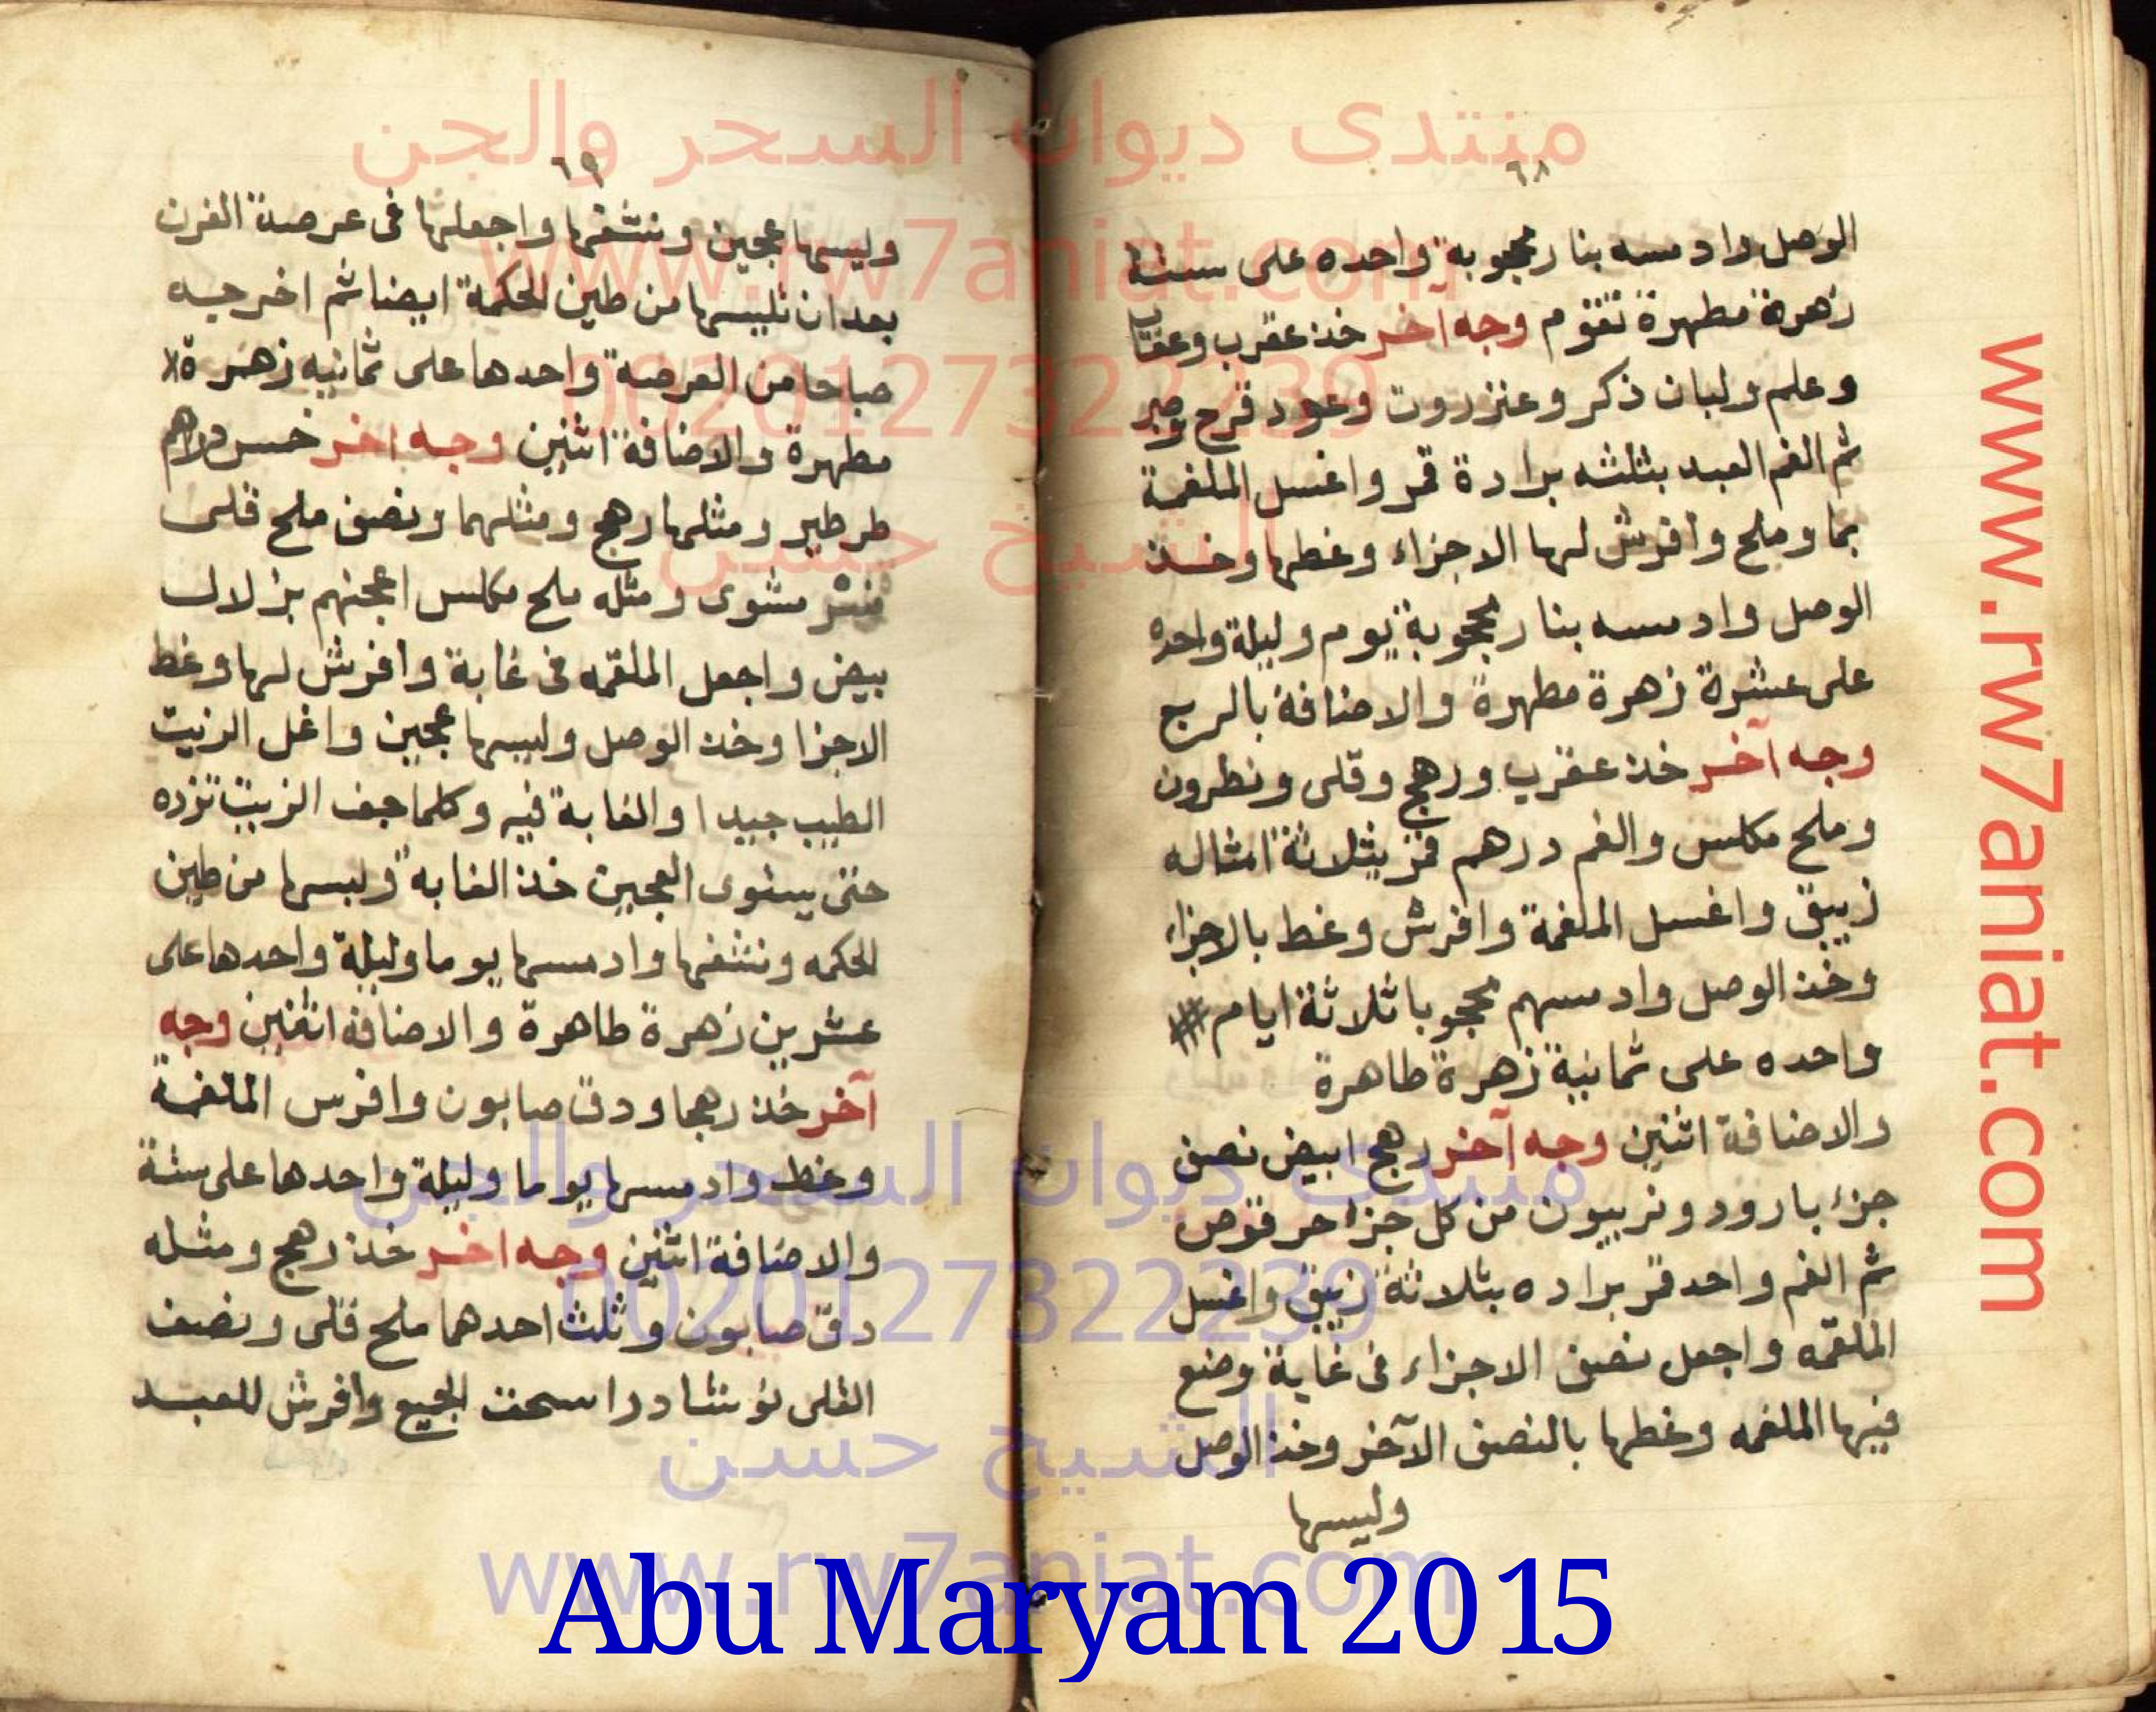 ٦٨
الوصل وادمسه بنار محجوبة واحده على ستة
زهرة مطهرة تقوم وجه آخر خذ عقرب وعقاب
وعلم ولبان ذكر وعنزروت وعود قرح وصبر
ثم الغم العبد بثلثه برادة قمر واغسل الملغمة
بما وملح وافرش لها الاجزاء وغطها وخذ
الوصل وادمسه بنار محجوبة يوم وليلة واحده
على عشرة زهرة مطهرة والاضافة بالربح
وجه آخر خذ عقرب ورهج وقلى ونطرون
وملح مكلس والغم درهم قمر بثلاثة امثاله
زيبق واغسل الملغمة وافرش وغط بالاجزاء
وخذ الوصل وادمسهم محجوبا ثلاثة ايام
واحده على ثمانية زهرة طاهرة
والاضافة اثنين وجه آخر رهج ابيض نصف
جزء بارود وتربيون من كل جزء حر قوص
ثم الغم واحد قمر براده بثلاثة زيبق واغسل
الملقمه واجعل نصف الاجزاء فى غابة وضع
فيها الملغمه وغطها بالنصف الآخر وخذ الوصل
وليسها
٦٩
وليسها عجين ونشفها واجعلها فى عرصة الفرن
بعد ان تليسها من طين الحكمة ايضا ثم اخرجيه
صباحا من العرصة واحدها على ثمانيه زهرة
مطهرة والاضافة اثنين وجه اخر خمس دراهم
طرطير ومثلها رهج ومثلهما ونصف ملح قلى
مشوى ومثله ملح مكلس اعجنهم بزلال
بيض واجعل الملقمه فى غابة وافرش لها وغط
الاجزا وخذ الوصل وليسها عجين واغل الزيت
الطيب جيدا والغابة فيه وكلما جف الزيت تزده
حتى يستوى العجين خذ الغابة وليسها من طين
الحكمه ونشفها وادمسها يوما وليلة واحدها على
عشرين زهرة طاهرة والاضافة اثنين وجه
آخر خذ رهجا ودق صابون وافرس الملغمة
وغط وادمسها يوما وليلة واحدها على ستة
والاضافة اثنين وجه اخر خذ رهج ومثله
دق صابون وثلث احدهما ملح قلى ونصف
القلى نوشادرا اسحق الجميع وافرش للعبد
منتدى ديوان السحر والجن
www.rw7aniat.com
00201273222239
الشيخ حسن
منتدى ديوان السحر والجن
00201273222239
الشيخ حسن
www.rw7aniat.com
www.rw7aniat.com
Abu Maryam 2015